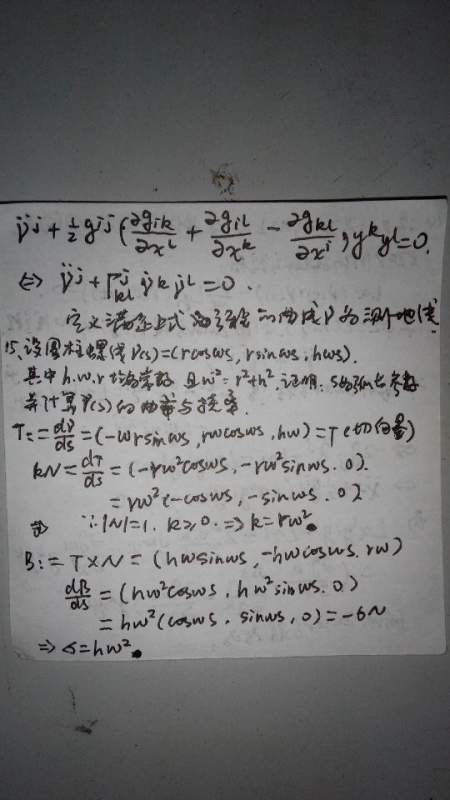 γ̈ʲ + ½ gⁱʲ (∂gᵢₖ/∂xˡ + ∂gᵢₗ/∂xᵏ − ∂gₖₗ/∂xⁱ) γ̇ᵏ γ̇ˡ = 0.
⇔ γ̈ʲ + Γʲₖₗ γ̇ᵏ γ̇ˡ = 0.
定义满足上式的曲线γ为测地线
15. 设圆柱螺线γ(s)=(rcosws, rsinws, hws).
其中h.w.r均为常数 且w²=r²+h². 证明: s为弧长参数
并计算γ(s)的曲率与挠率.
T:=dγ/ds=(-wrsinws, rwcosws, hw)=T(切向量)
kN=dT/ds=(-rw²cosws, -rw²sinws. 0)
=rw²(-cosws, -sinws. 0)
∵|N|=1. k≥0. ⇒ k=rw².
B:=T×N=(hwsinws, -hwcosws. rw)
dB/ds=(hw²cosws, hw²sinws. 0)
=hw²(cosws, sinws, 0)=-σN
⇒ σ=hw².